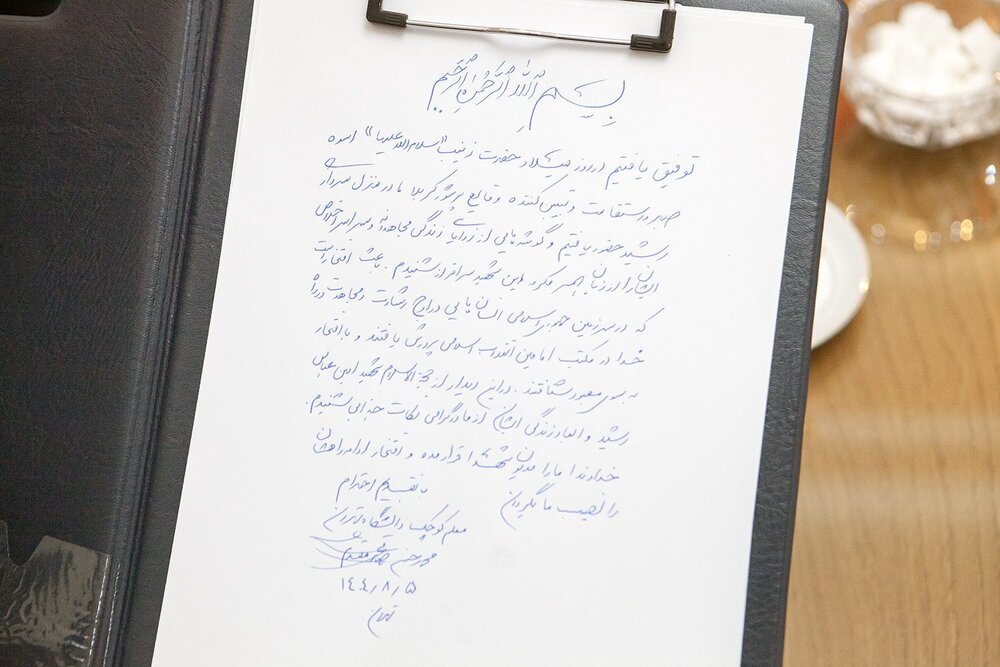 بسم الله الرحمن الرحیم
توفیق یافتیم در روز میلاد حضرت زینب "سلام الله علیها" اسوه
صبر و استقامت و تبیین کننده وقایع پرشور کربلا ما در منزل سردار
رشید حضور یافتیم و گوشه هایی از زوایای زندگی مجاهدانه و سراسر اخلاص
ایشان را از زبان همسر مکرمه این شهید سرافراز شنیدیم. باعث افتخار است
که در سرزمین جمهوری اسلامی انسان هایی در اوج رشادت و مجاهدت در راه
خدا در مکتب امامین انقلاب اسلامی پرورش یافتند و با افتخار
به سوی معبود شتافتند. در این دیدار از حجة الاسلام شهید امین عباس
رشید و ابعاد زندگی ایشان از مادر گرامی نکات جذابی شنیدیم.
خداوندا ما را مدیون شهدا قرار مده و افتخار ادامه راهشان
را نصیب ما بگردان
با تقدیم احترام
معلم کوچک دانشگاه تهران
محمد حسین
۱۴۰۴/۸/۵
تهران